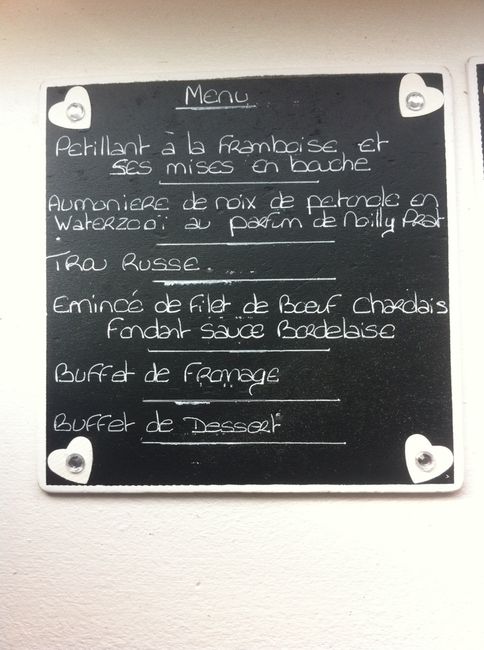 Menu
Petillant à la Framboise et
ses mises en bouche
Aumoniere de noix de petoncle en
Waterzooï au parfum de Noilly Prat
Trou Russe.
Emincé de Filet de Bœuf Charolais
Fondant sauce Bordelaise
Buffet de Fromage
Buffet de Dessert